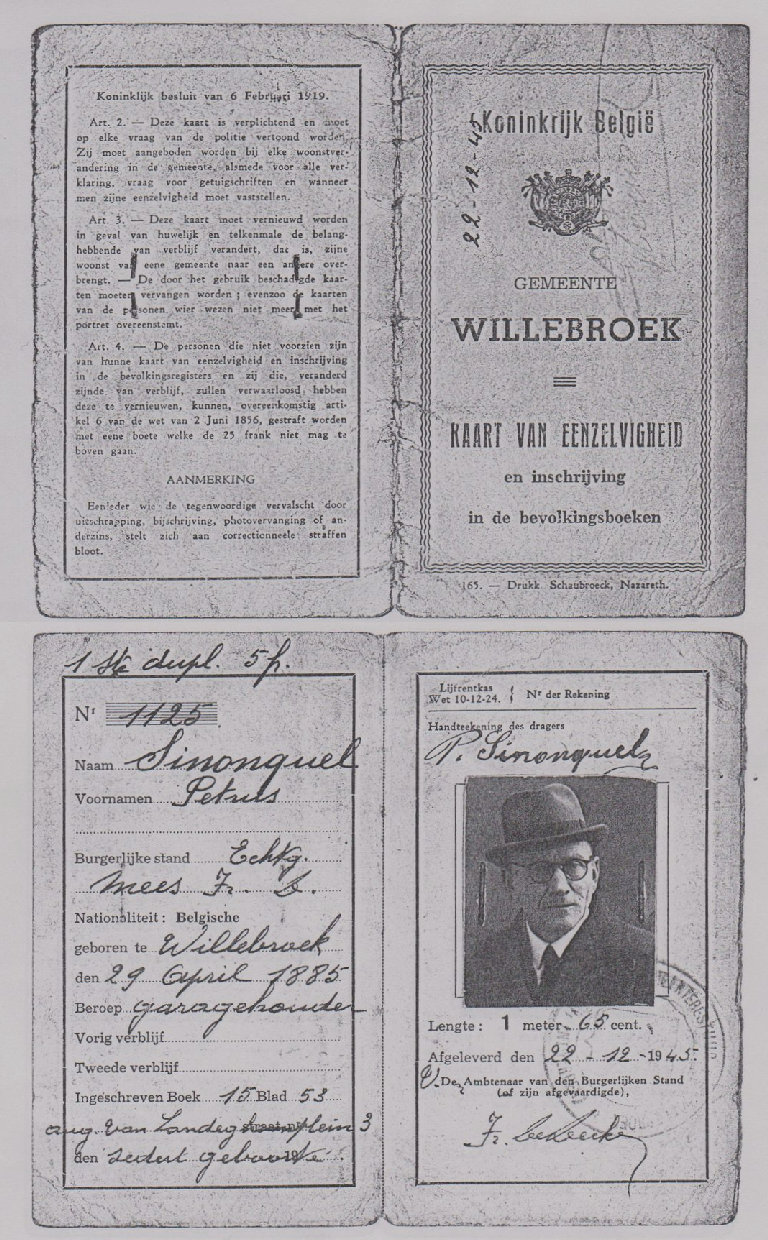 Koninklijk besluit van 6 Februari 1919.
Art. 2. — Deze kaart is verplichtend en moet
op elke vraag van de politie vertoond worden.
Zij moet aangeboden worden bij elke woonstver-
andering in de gemeente, alsmede voor alle ver-
klaring, vraag voor getuigschriften en wanneer
men zijne eenzelvigheid moet vaststellen.
Art. 3. — Deze kaart moet vernieuwd worden
in geval van huwelijk en telkenmale de belang-
hebbende van verblijf verandert, dat is, zijne
woonst van eene gemeente naar een andere over-
brengt. — De door het gebruik beschadigde kaar-
ten moeten vervangen worden ; evenzoo de kaarten
van de personen wier wezen niet meer met het
portret overeenstemt.
Art. 4. — De personen die niet voorzien zijn
van hunne kaart van eenzelvigheid en inschrijving
in de bevolkingsregisters en zij die, veranderd
zijnde van verblijf, zullen verwaarloosd hebben
deze te vernieuwen, kunnen, overeenkomstig arti-
kel 6 van de wet van 2 Juni 1856, gestraft worden
met eene boete welke de 25 frank niet mag te
boven gaan.
AANMERKING
Eenieder wie de tegenwoordige vervalscht door
uitschrapping, bijschrijving, photovervanging of an-
derzins, stelt zich aan correctionneele straffen
bloot.
22-12-45
Koninkrijk België
GEMEENTE
WILLEBROEK
KAART VAN EENZELVIGHEID
en inschrijving
in de bevolkingsboeken
165. — Drukk. Schaubroeck, Nazareth.
1 ste dupl. 5 fr.
Nr 1125
Naam Sinonquel
Voornamen Petrus
Burgerlijke stand Echtg.
Mees
Nationaliteit : Belgische
geboren te Willebroek
den 29 April 1885
Beroep garagehouder
Vorig verblijf
Tweede verblijf
Ingeschreven Boek 15 Blad 53
Aug. Van Landeg plein 3
den sedert geboorte
Lijfrentkas
Wet 10-12-24.
Nr der Rekening
Handteekening des dragers
P. Sinonquel
Lengte : 1 meter 65 cent.
Afgeleverd den 22 - 12 - 1945.
De Ambtenaar van den Burgerlijken Stand
(of zijn afgevaardigde),